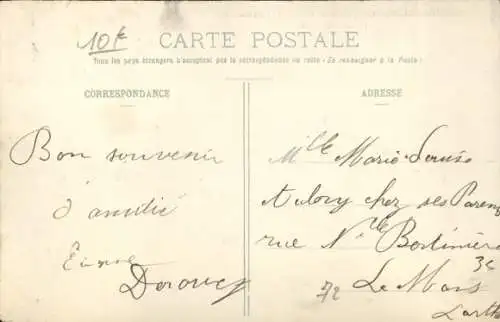 10f
CARTE POSTALE
Tous les pays étrangers n'acceptent pas la correspondance au recto (Se renseigner à la Poste)
CORRESPONDANCE
ADRESSE
Bon souvenir
d'amitié
Mlle Marie-Louise
chez ses Parents
rue Nlle
Le Mans
Sarthe
72